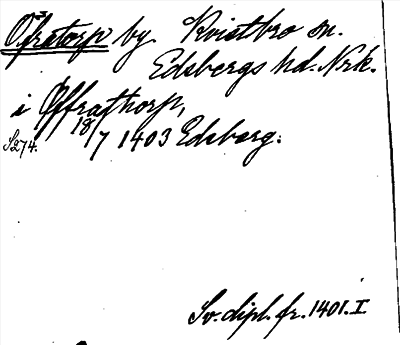 Öfratorp by. Kvistbro sn.
Edsbergs hd. Nrk.
i Øffrathorp,
S274. 18/7 1403 Edsberg:
Sv. dipl. fr. 1401. I